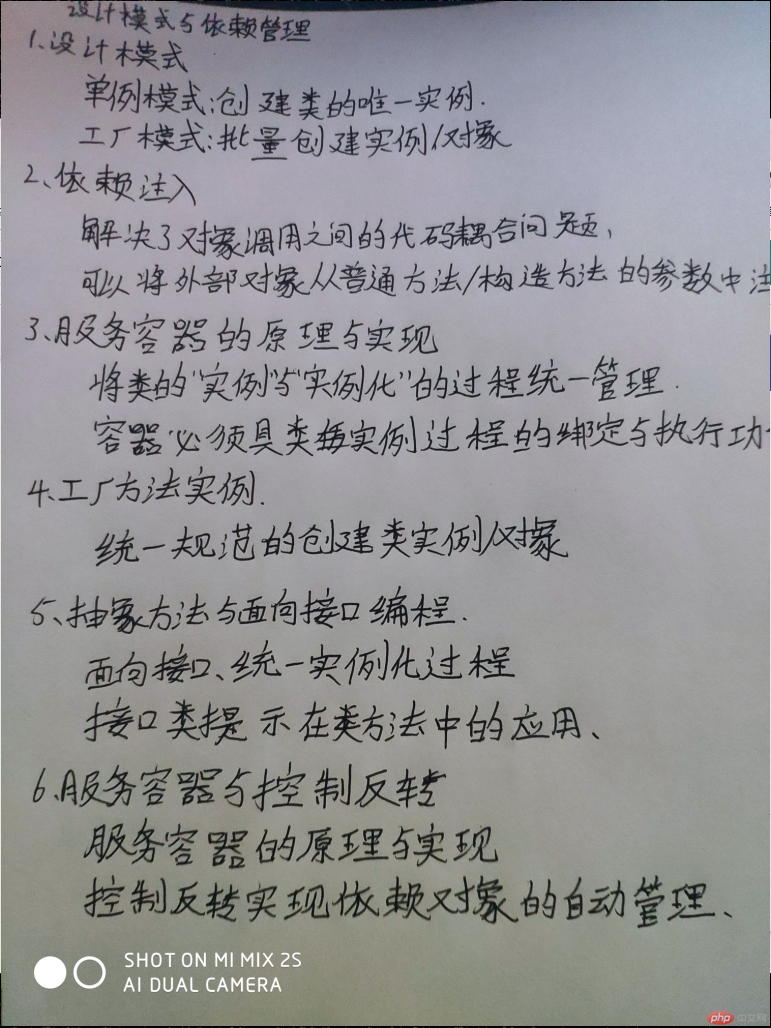 设计模式与依赖管理
1、设计模式
单例模式:创建类的唯一实例.
工厂模式:批量创建实例/对象
2、依赖注入
解决了对象调用之间的代码耦合问题,
可以将外部对象从普通方法/构造方法的参数中注
3、服务容器的原理与实现
将类的"实例"与"实例化"的过程统一管理.
容器必须具类实例过程的绑定与执行功
4、工厂方法实例.
统一规范的创建类实例/对象
5、抽象方法与面向接口编程.
面向接口、统一实例化过程
接口类提示在类方法中的应用、
6、服务容器与控制反转
服务容器的原理与实现
控制反转实现依赖对象的自动管理、
SHOT ON MI MIX 2S
AI DUAL CAMERA
php 中文网